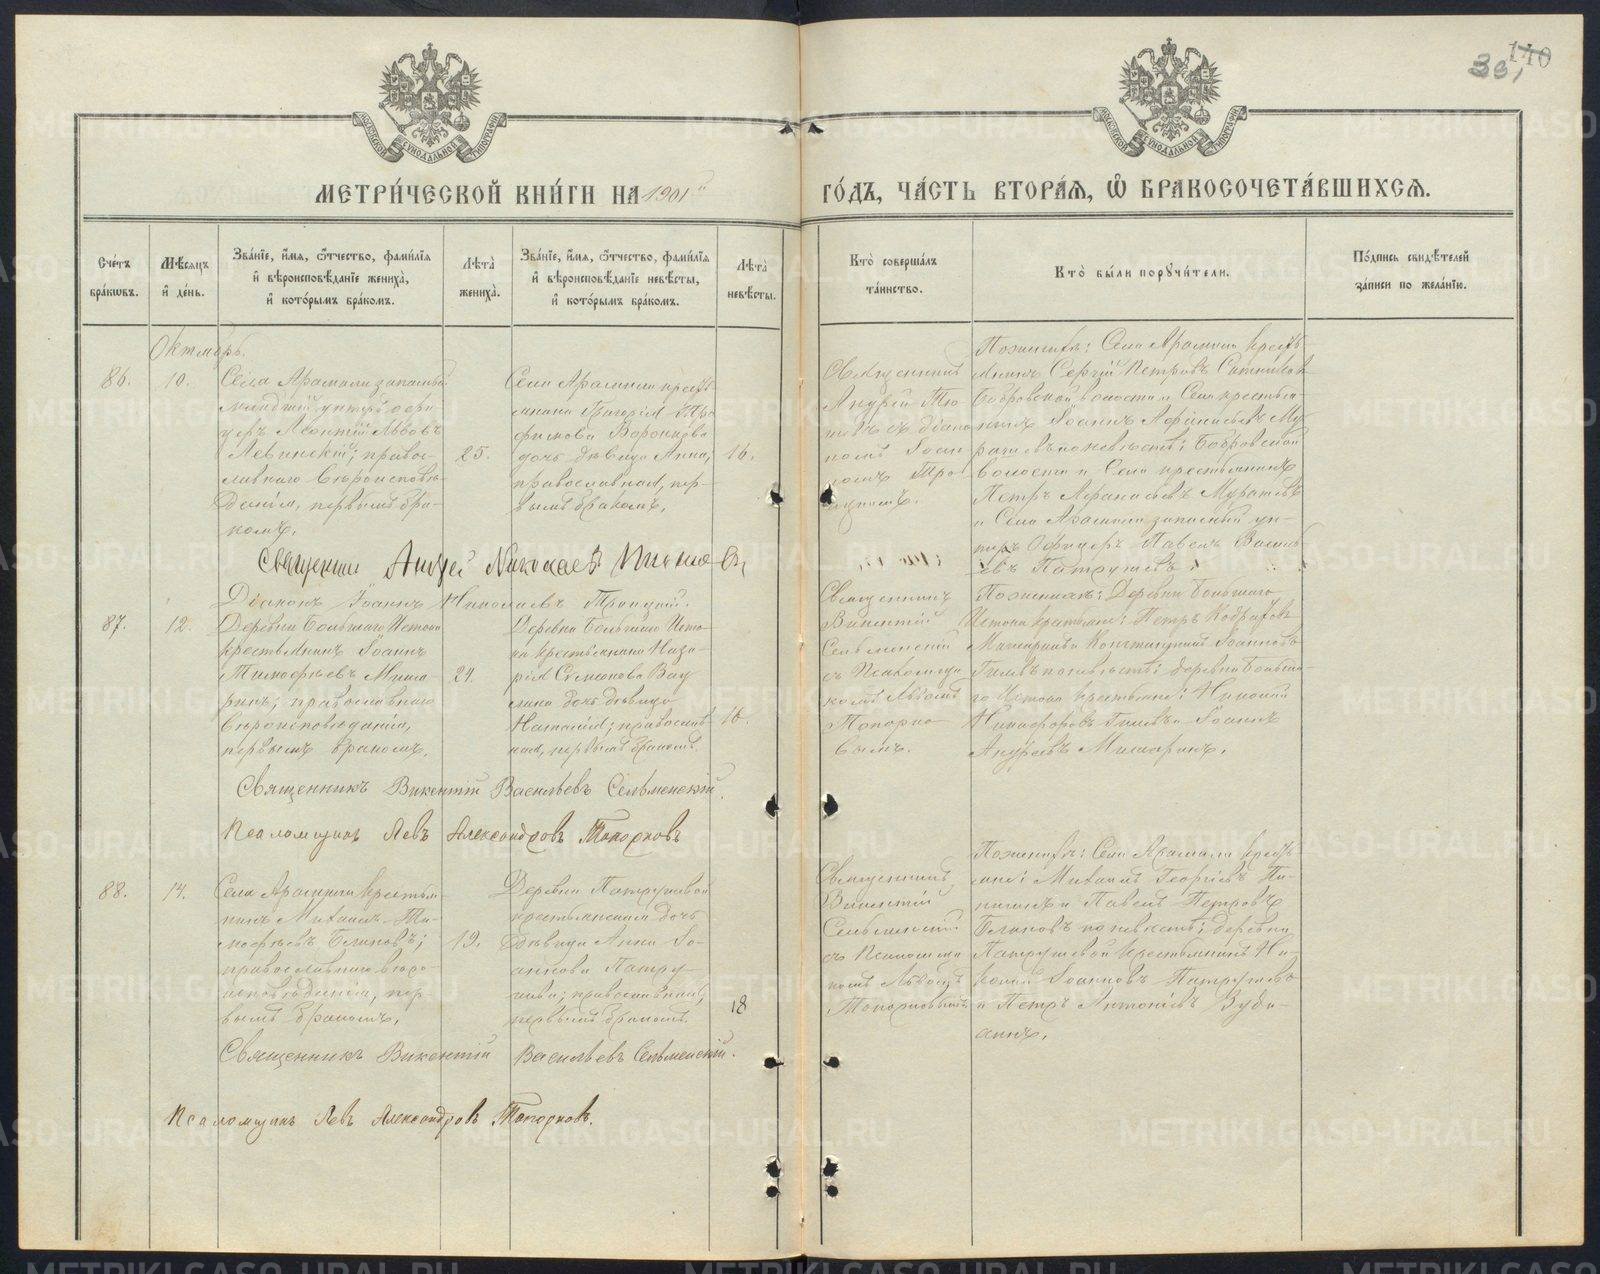 140
МЕТРИ́ЧЕСКОЙ КНИ́ГИ НА 1901 ГО́ДЪ, ЧА́СТЬ ВТОРА́Ѧ, Ѽ БРАКОСОЧЕТА́ВШИХСѦ.
Сче́тъ бра́кѡвъ.
Мѣ́сѧцъ и҆ де́нь.
Зва́нїе, и҆́мѧ, ѻ҆́тчество, фами́лїѧ и҆ вѣроисповѣ́данїе жениха̀, и҆ кото́рымъ бра́комъ.
Лѣта̀ жениха̀.
Зва́нїе, и҆́мѧ, ѻ҆́тчество, фами́лїѧ и҆ вѣроисповѣ́данїе невѣ́сты, и҆ кото́рымъ бра́комъ.
Лѣта̀ невѣ́сты.
Кто̀ соверша́лъ та́инство.
Кто̀ бы́ли порꙋчи́тели.
По́дпись свидѣ́телей за́писи по жела́нїю.
Октябрь.
86.
10.
Села Арамили запасный
младшій унтеръ офи-
церъ Леонтій Львовъ
Левинскій; правос-
лавнаго вѣроисповѣ-
данія, первымъ бра-
комъ.
25.
Села Арамили кресть-
янина Григорія Тро-
фимова Воронкова
дочь дѣвица Анна,
православная, пер-
вымъ бракомъ.
16.
Священникъ
Андрей
съ діако-
номъ Іоан-
номъ Тро-
ицкимъ.
По женихѣ: Села Арамили кресть-
янинъ Сергій Петровъ
Бобровской волости и Села крестья-
нинъ Іоаннъ Афанасьевъ Му-
по невѣстѣ: Бобровской
волости и Села крестьянинъ
Петръ Афанасьевъ
и Села Арамили запасный ун-
теръ Офицеръ Павелъ Василь-
евъ Патрушевъ.
Священникъ Андрей Николаевъ
Діаконъ Іоаннъ Николаевъ Троицкій.
87.
12.
Деревни Большаго Истока
крестьянинъ Іоаннъ
Тимофѣевъ Миша-
ринъ; православнаго
вѣроисповѣданія,
первымъ бракомъ.
21.
Деревни Большаго Исто-
ка крестьянина Наза-
рія Симеонова
дочь дѣвица
Наталія; православ-
ная, первымъ бракомъ.
16.
Священникъ
Викентій
Сельменскій
съ Псаломщи-
комъ Львомъ
Топорко-
вымъ.
По женихѣ: Деревни Большаго
Истока крестьяне: Петръ
Константинъ Іоанновъ
по невѣстѣ: деревни Больша-
го Истока крестьяне: Николай
Никифоровъ и Іоаннъ
Андреевъ Мишаринъ.
Священникъ Викентій Васильевъ Сельменскій.
Псаломщикъ Левъ Александровъ Топорковъ
88.
14.
Села Арамили крестья-
нинъ Михаилъ Ти-
мофѣевъ Блиновъ;
православнаго вѣро-
исповѣданія, пер-
вымъ бракомъ.
19.
Деревни Патрушевой
крестьянская дочь
дѣвица Анна Іо-
аннова Патру-
шева; православная,
первымъ бракомъ.
18
Священникъ
Викентій
Сельменскій
съ Псаломщи-
комъ Львомъ
Топорковымъ
По женихѣ: Села Арамили кресть-
яне: Михаилъ Георгіевъ
и Павелъ Петровъ
Блиновъ по невѣстѣ: деревни
Патрушевой крестьянинъ Ни-
колай Іоанновъ Патрушевъ
и Петръ Антоніевъ
Священникъ Викентій Васильевъ Сельменскій.
Псаломщикъ Левъ Александровъ Топорковъ.
METRIKI.GASO-URAL.RU